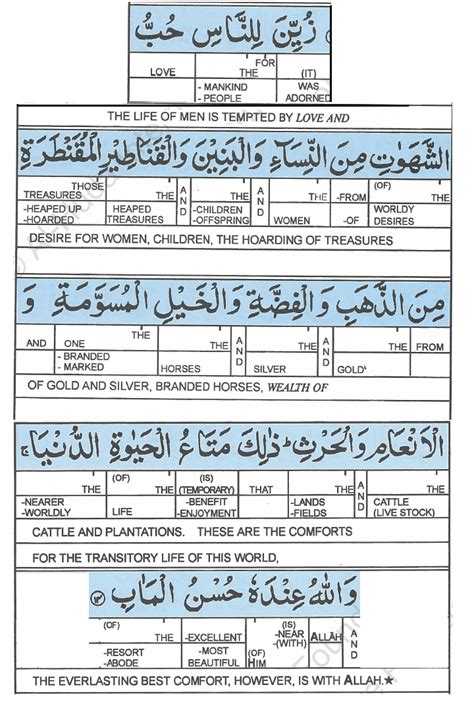 زُيِّنَ لِلنَّاسِ حُبُّ
FOR
LOVE THE (IT)
-MANKIND WAS
-PEOPLE ADORNED
THE LIFE OF MEN IS TEMPTED BY LOVE AND
الشَّهَوٰتِ مِنَ النِّسَآءِ وَالْبَنِيْنَ وَالْقَنَاطِيْرِ الْمُقَنْطَرَةِ
THOSE AND AND (OF)
TREASURES THE THE THE -FROM THE
-HEAPED UP HEAPED -CHILDREN WORLDY
-HOARDED TREASURES -OFFSPRING WOMEN -OF DESIRES
DESIRE FOR WOMEN, CHILDREN, THE HOARDING OF TREASURES
مِنَ الذَّهَبِ وَالْفِضَّةِ وَالْخَيْلِ الْمُسَوَّمَةِ وَ
THE AND AND
AND ONE THE THE THE FROM
- BRANDED
- MARKED HORSES SILVER GOLD
OF GOLD AND SILVER, BRANDED HORSES, WEALTH OF
الْاَنْعَامِ وَالْحَرْثِ ؕ ذٰلِكَ مَتَاعُ الْحَيٰوةِ الدُّنْيَا ۚ
(OF) (IS) AND
THE THE (TEMPORARY) THAT THE THE
-NEARER -BENEFIT -LANDS CATTLE
-WORLDLY LIFE -ENJOYMENT -FIELDS (LIVE STOCK)
CATTLE AND PLANTATIONS. THESE ARE THE COMFORTS
FOR THE TRANSITORY LIFE OF THIS WORLD,
وَاللّٰهُ عِنْدَهٗ حُسْنُ الْمَاٰبِ ﴿۱۴﴾
(OF) (IS) AND
THE -EXCELLENT -NEAR ALLĀH
-RESORT -MOST (OF) -(WITH)
-ABODE BEAUTIFUL HIM
THE EVERLASTING BEST COMFORT, HOWEVER, IS WITH ALLAH.★